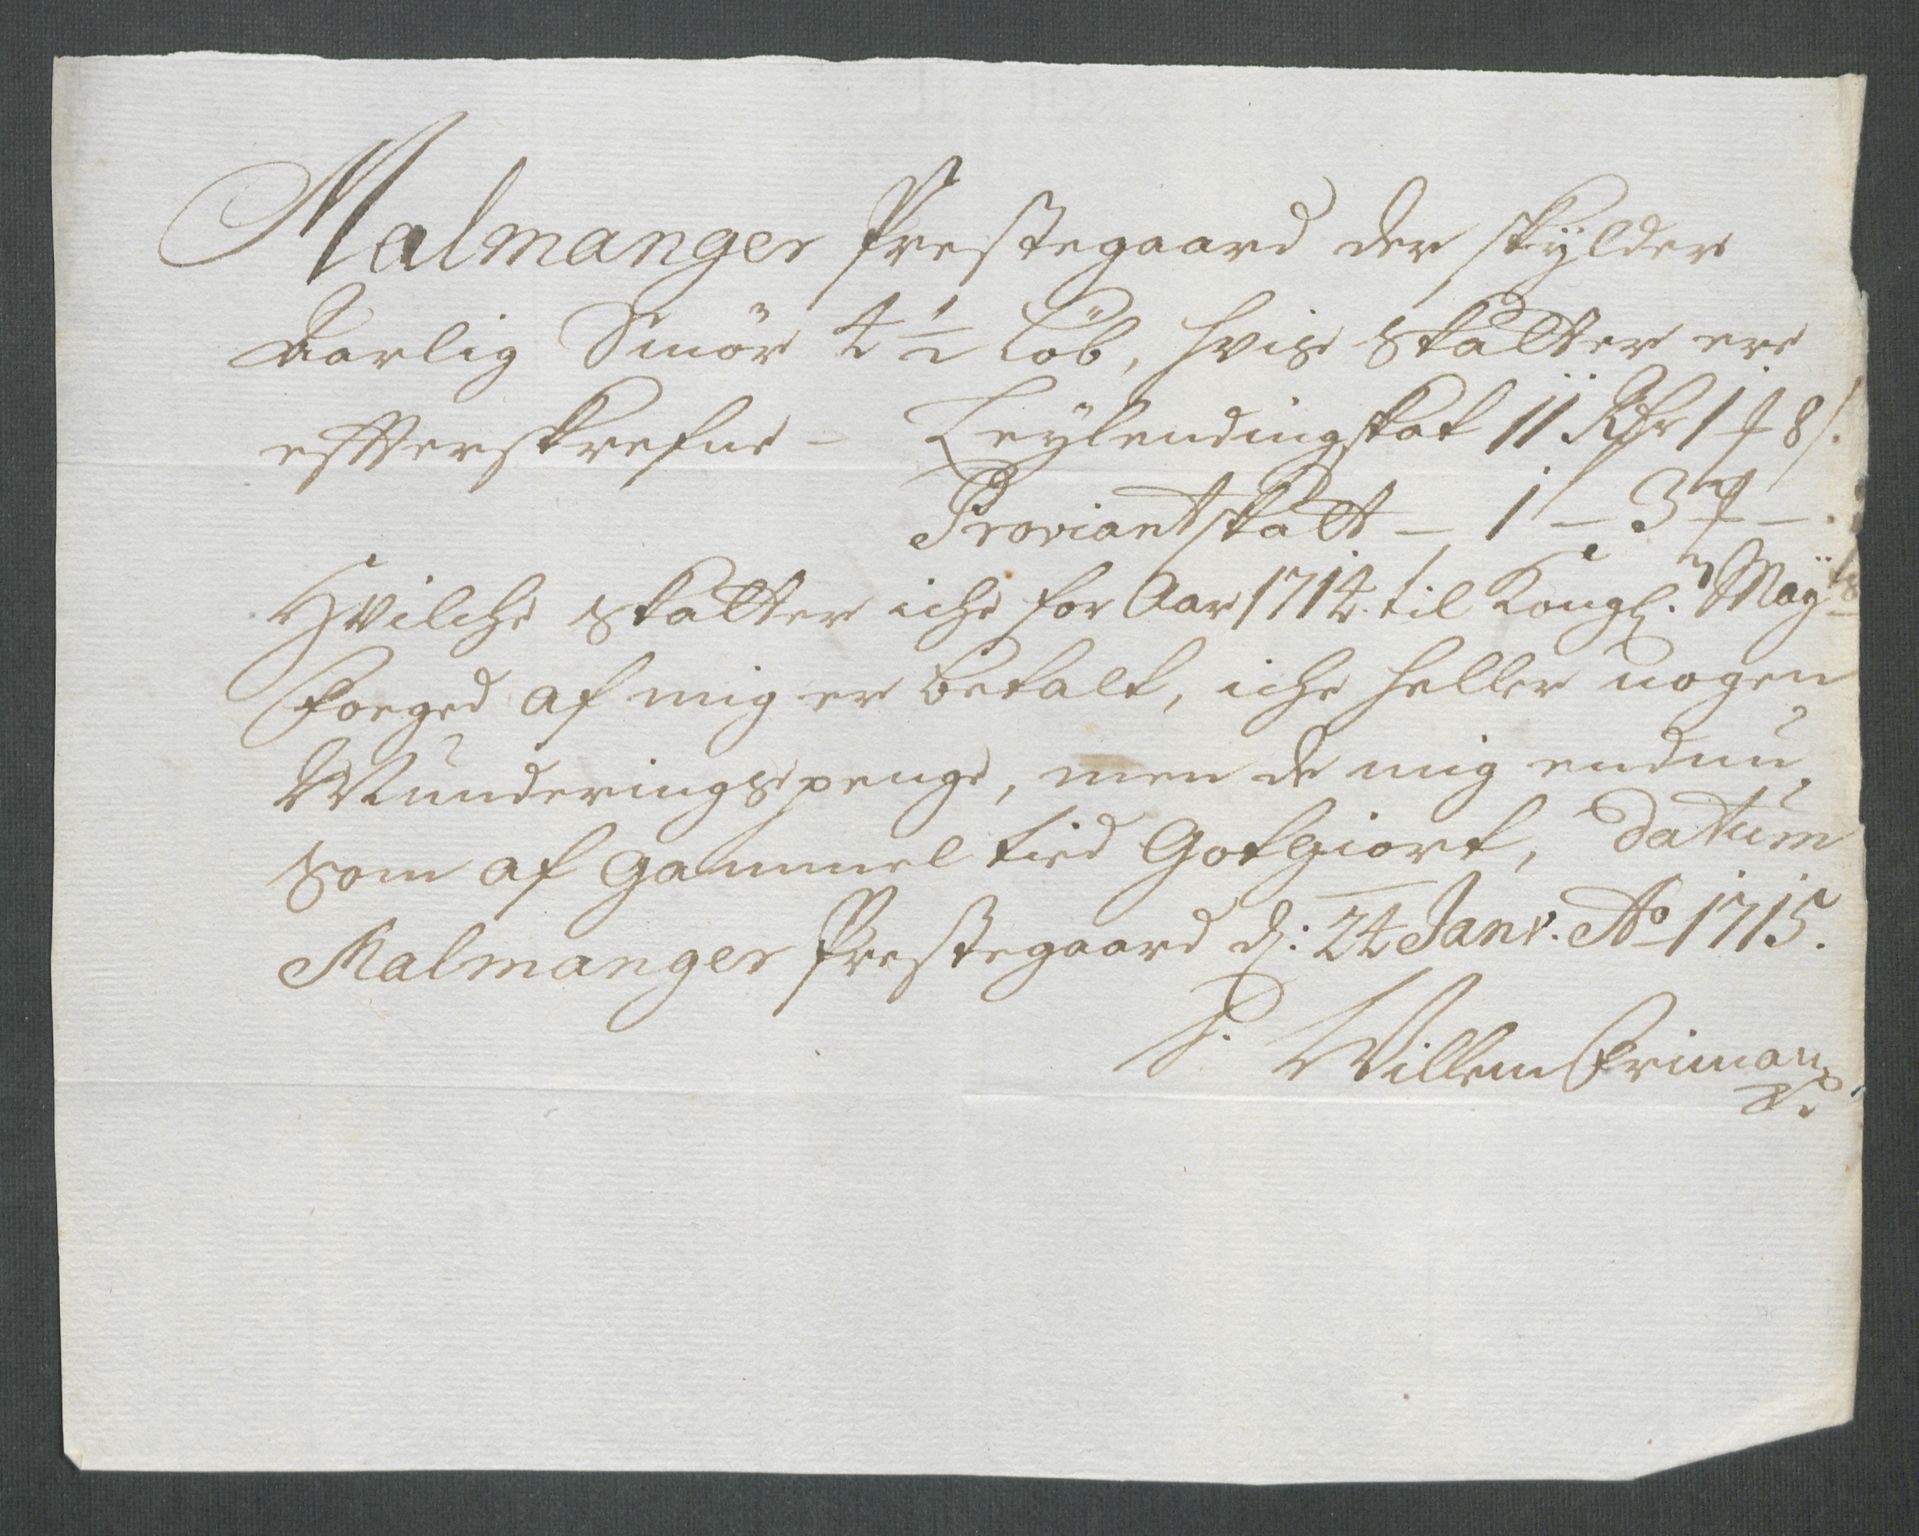 Malmanger Prestegaard der skylder
Aarlig Smör 4 1/2 Löb, hvis skatter ere
effterskrefne - Leÿlendingskat 11 Rdr 1 ß 8 s.
Proviantskatt - 1 - 3 ß -.
Hvilche skatter iche for Aar 1714 til Kongl. Maÿts
Foeged af mig er betalt, iche heller nogen
Munderingspenge, men de mig endnu
som af gammel tid Gotgiort, Datum
Malmanger Prestegaard d: 24 Janr. Ao 1715.
Willem Friman